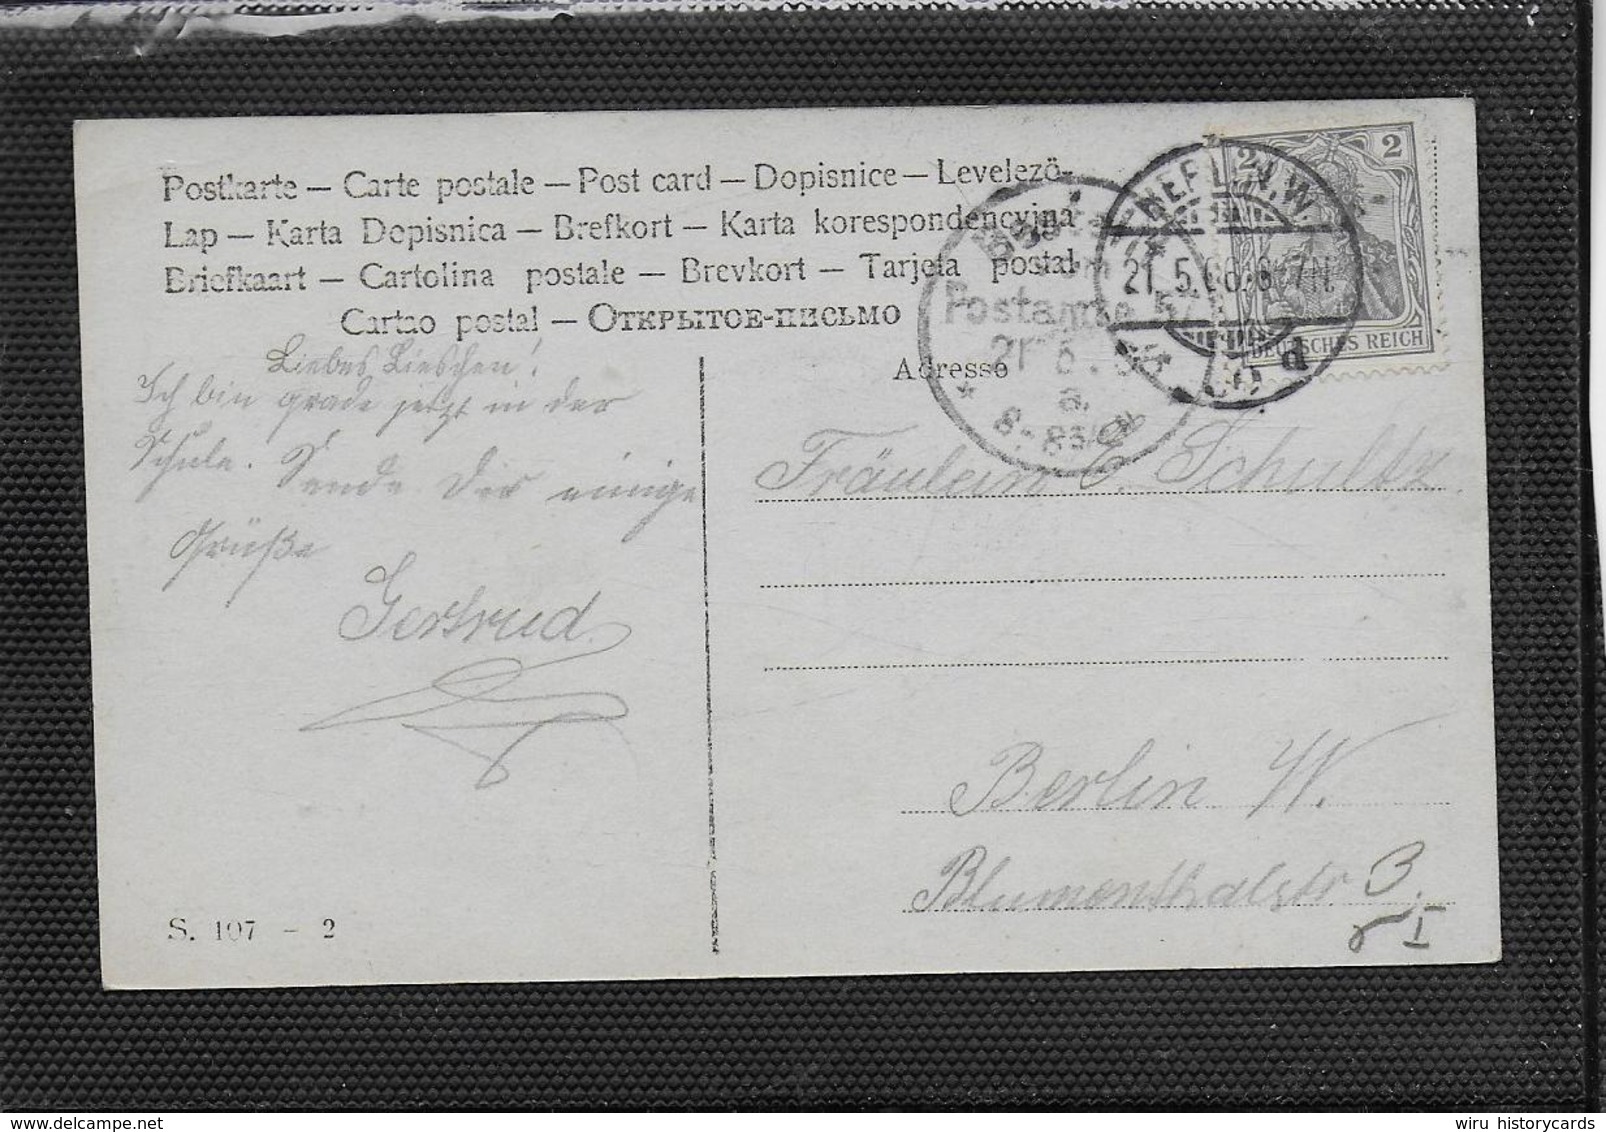 Postkarte — Carte postale — Post card — Dopisnice — Levelező-
Lap — Karta Dopisnica — Brefkort — Karta korespondencyjna
Briefkaart — Cartolina postale — Brevkort — Tarjeta postal
Cartao postal — Открытое-письмо
Adresse
Liebes Lieschen!
Ich bin grade jetzt in der
Schule. Sende Dir einige
Grüße
Gertrud
S. 107 - 2
BERLIN N.W.
21.5.06. 6-7N.
d
Postamte 57
a.
2 2
DEUTSCHES REICH
Fräulein E. Schultz
Berlin W.
Blumenthalstr 3.
I
wiru historycards